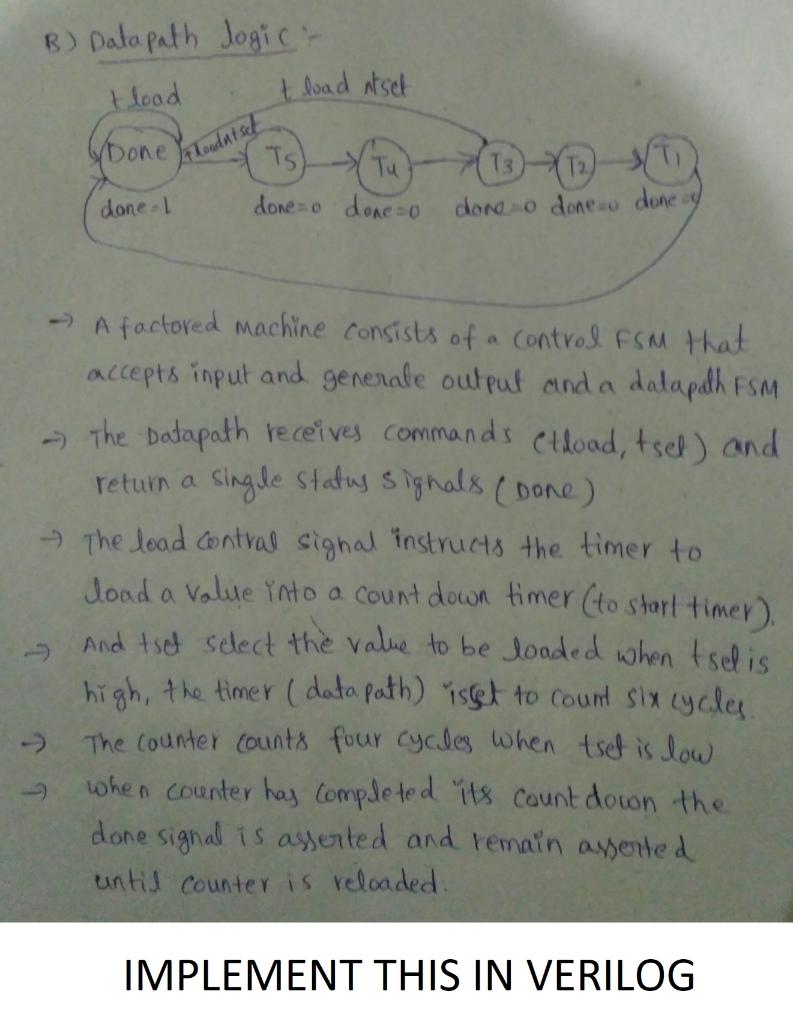 B) Datapath logic :-
t load
t load ntset
tloadntset
Done
T5
T4
T3
T2
T1
done=1
done=0
done=0
done=0
done=0
done=0
→ A factored machine consists of a control FSM that
accepts input and generate output and a datapath FSM
→ The Datapath receives commands (tload, tsel) and
return a single status signals (Done)
→ The load control signal instructs the timer to
load a value into a count down timer (to start timer).
→ And tset select the value to be loaded when tsel is
high, the timer (data path) is set to count six cycles.
→ The counter counts four cycles when tset is low
→ when counter has completed its count down the
done signal is asserted and remain asserted
until counter is reloaded.
IMPLEMENT THIS IN VERILOG